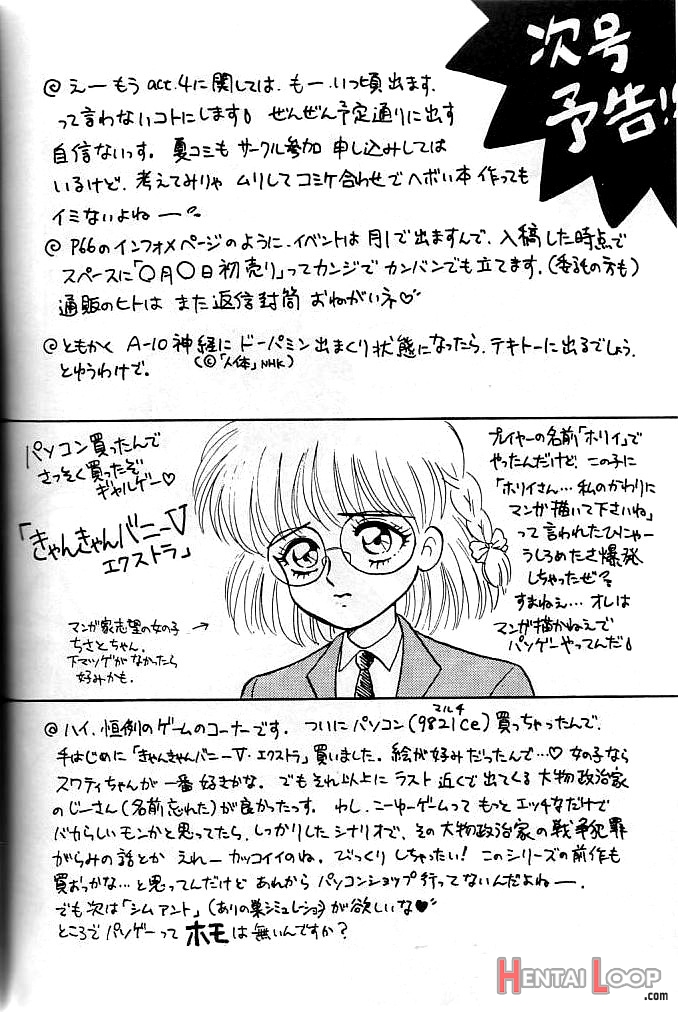 次号
予告!!
@ えー もう act.4に関しては、もー、いつ頃出ます、
って言わないコトにします。ぜんぜん予定通りに出す
自信ないっす。夏コミも サークル参加 申し込みしては
いるけど、考えてみりゃ ムリして コミケ合わせで ヘボい本 作っても
イミないよねー。
@ P66のインフォメページのように、イベントは 月1で出ますんで、入稿した時点で
スペースに「〇月〇日初売り」ってカンジで カンバンでも立てます。(委託の方も)
通販のヒトは また返信封筒 おねがいネ♡
@ともかく A-10神経に ドーパミン出まくり状態になったら、テキトーに出るでしょう。
(©「人体」NHK)
とゆうわけで。
パソコン買ったんで
さっそく買ったぞ
ギャルゲー♡
「きゃんきゃんバニーⅤ
エクストラ」
マンガ家志望の女の子 →
ちさとちゃん。
下マツゲがなかったら
好みかも。
プレイヤーの名前「ホリイ」で
やったんだけど、この子に
「ホリイさん…私のかわりに
マンガ描いて下さいね」
って言われたひにゃー
うしろめたさ爆発
しちゃったぜ
すまねえ…オレは
マンガ描かねえで
パソゲーやってんだ
@ハイ、恒例のゲームのコーナーです。ついにパソコン(9821Ce)買っちゃったんで、
マルチ
手はじめに「きゃんきゃんバニーⅤ・エクストラ」買いました。絵が好みだったんで…♡ 女の子なら
スワティちゃんが一番好きかな。でもそれ以上に ラスト近くで出てくる大物政治家
のじーさん(名前忘れた)が良かったっす。わし、こーゆーゲームって もっとエッチなだけで
バカらしいモンかと思ってたら、しっかりしたシナリオで、その大物政治家の戦争犯罪
がらみの話とか えれーカッコイイのね。びっくりしちゃったい! このシリーズの前作も
買おっかな…と思ってんだけど あれから パソコンショップ行ってないんだよねー。
でも次は「シムアント」(ありの巣シミュレーション)が欲しいな♥
ところでパソゲーって ホモは無いんですか?
HENTAI LOOP
.com